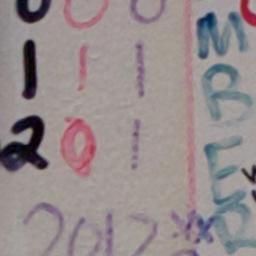 0 0 0
1 1 1
2 0 1
2012
MBER